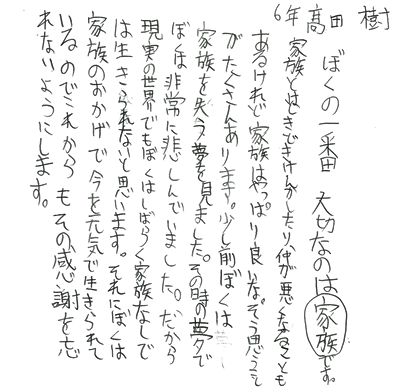 6年 高田 樹
ぼくの一番 大切なのは家族です。
家族とはときどきけんかしたり、仲が悪くなることも
あるけれど家族はやっぱり良いな。そう思うこと
がたくさんあります。少し前ぼくは
家族を失う夢を見ました。その時の夢で
ぼくは非常に悲しんでいました。だから
現実の世界でもぼくはしばらく家族なしで
は生きられないと思います。それにぼくは
家族のおかげで今を元気で生きられて
いるのでこれからもその感謝を忘
れないようにします。